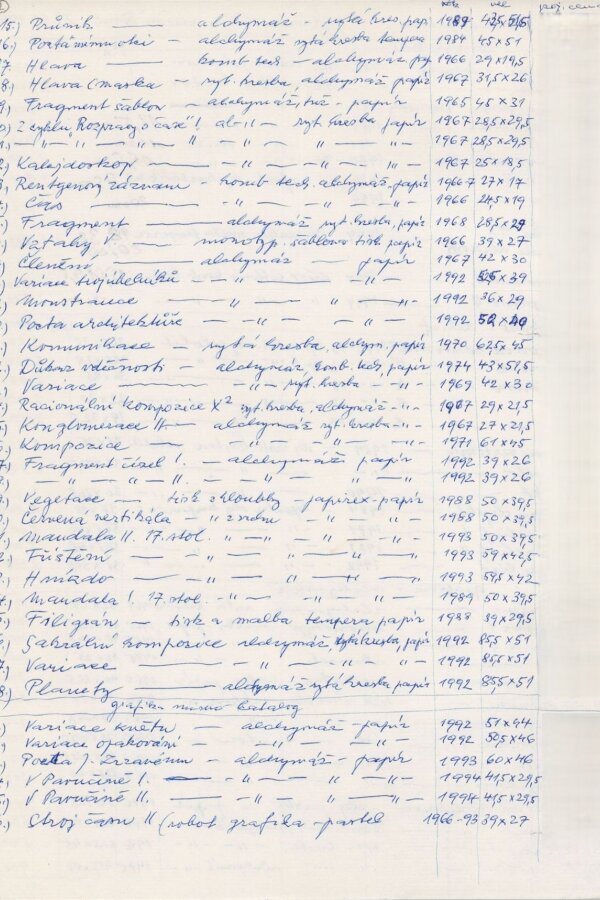 rok vel
5.) Průnik — alchymáž - rytá kres. papír 1987 42,5×51,5
6.) Pocta mimu noci - alchymáž rytá kresba tempera 1984 45×51
7. Hlava — komb. tech - alchymáž pap 1966 29×19,5
8.) Hlava (maska - ryt. kresba, alchymáž papír 1967 31,5×26
Fragment šablov - alchymáž, tuš - papír 1965 45×31
Z cyklu "Rozpravy o čase" I. al -"- ryt. kresba papír 1967 28,5×29,5
1.) -"- -"- -"- -"- -"- 1967 28,5×29,5
2.) Kalejdoskop — -"- -"- -"- 1967 25×18,5
Rentgenový záznam - komb tech. alchymáž, papír 1966-7 27×17
Čas — -"- -"- -"- 1966 24,5×19
Fragment — alchymáž ryt. kresba, papír 1968 28,5×29
Vztahy V. — monotyp. šablona tisk papír 1966 39×27
Členění — alchymáž — papír 1967 42×30
Variace trojúhelníků — -"- — -"- 1992 ×39
Monstrance — -"- — -"- 1992 36×29
Pocta architektuře — -"- -"- 1992 50×40
Komunikace - rytá kresba, alchym. papír 1970 62,5×45
Důkaz vděčnosti - alchymáž, komb. tech, papír 1974 43×51,5
Variace — -"- ryt. kresba -"- 1969 42×30
Racionální kompozice X² ryt. kresba, alchymáž -"- 1967 29×21,5
Konglomerace II — alchymáž ryt. kresba -"- 1967 27×21,5
Kompozice — -"- -"- -"- 1971 61×45
7.) Fragment čísel I. — alchymáž papír 1992 39×26
-"- -"- -"- -"- -"- 1992 39×26
Vegetace — tisk z hloubky - papírex - papír 1988 50×39,5
Červená vertikála - "z vrchu -"- -"- 1988 50×39,5
Mandala II. 17. stol. -"- -"- -"- 1993 50×39,5
Tříštění — -"- -"- -"- 1993 59×42,5
Hnízdo — -"- -"- -"- 1993 59,5×42
Mandala I. 17. stol. -"- -"- -"- 1989 50×39,5
Filigrán — tisk a malba tempera papír 1988 39×29,5
Sakrální kompozice alchymáž, rytá kresba, papír 1992 85,5×51
7.) Variace — -"- -"- -"- 1992 85,5×51
8.) Planety — alchymáž rytá kresba papír 1992 85,5×51
grafika mimo katalog
Variace květu — alchymáž - papír 1992 51×44
Variace opakování — -"- -"- 1992 50,5×46
Pocta J. Zrzavému - alchymáž - papír 1993 60×46
V Pavučině I. — -"- -"- -"- 1994 41,5×29,5
V Pavučině II. — -"- -"- 1994 41,5×29,5
Stroj času II (robot. grafika - pastel 1966-93 39×27